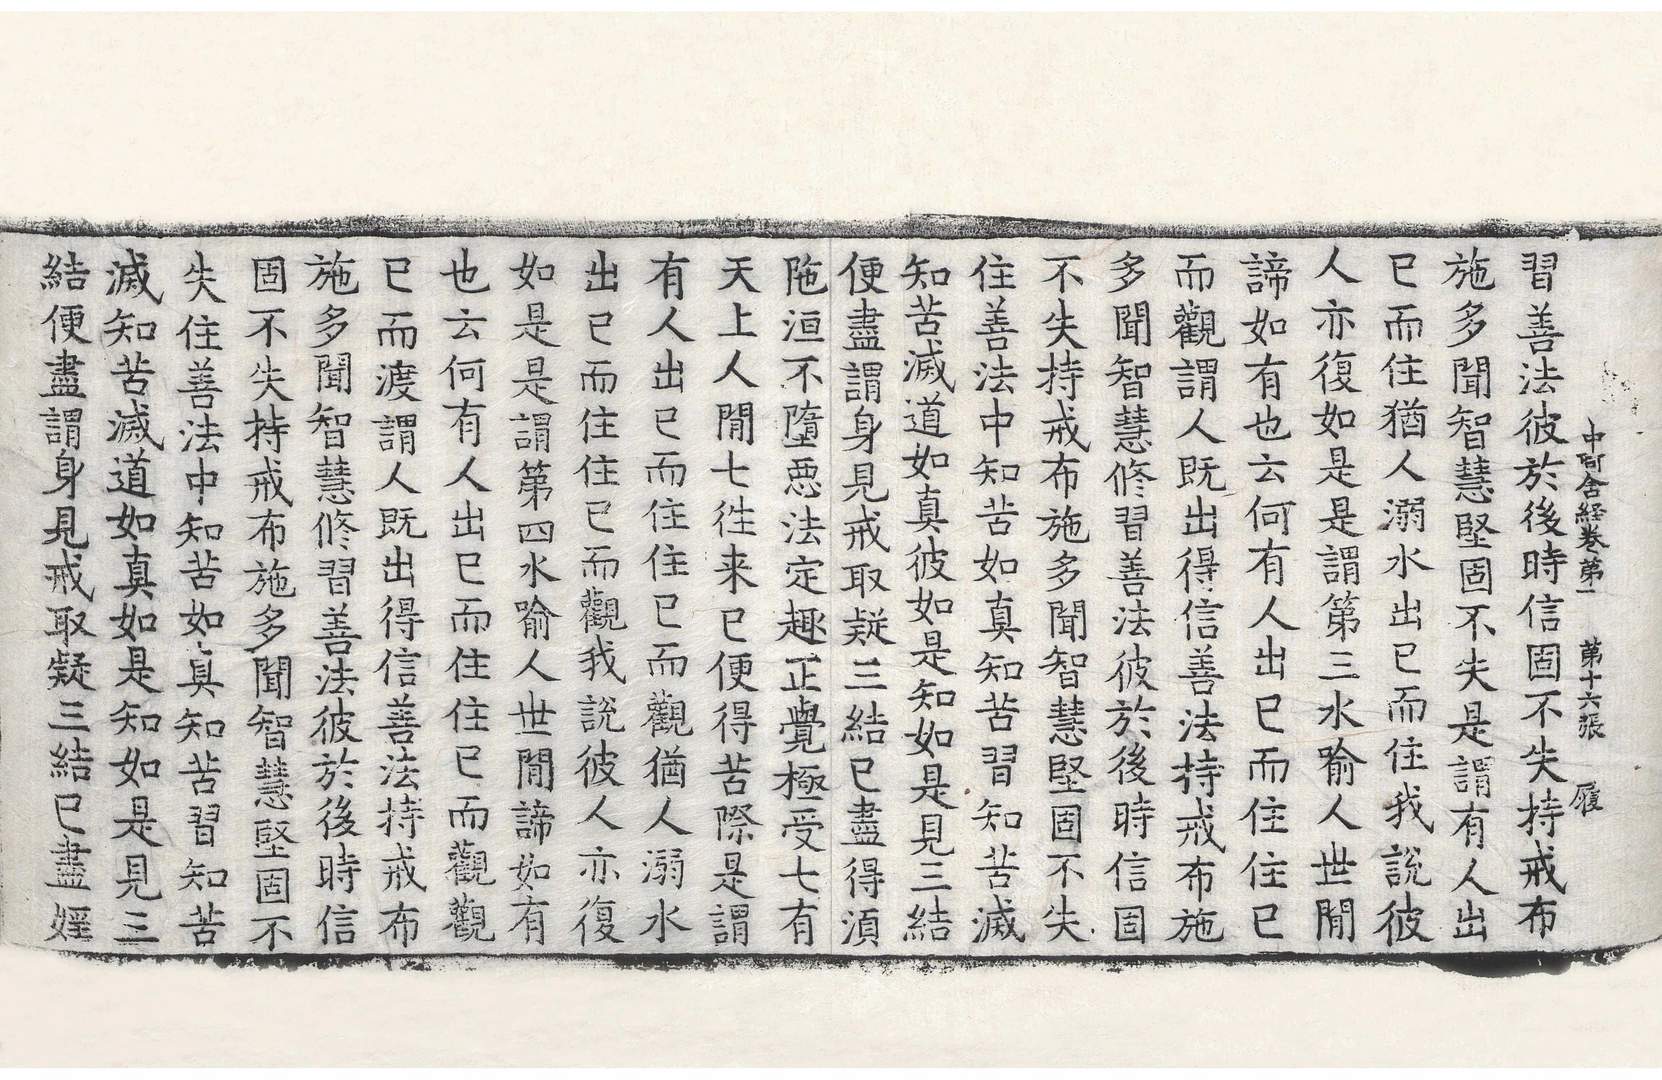 中阿含経卷第一　第十六張　履
習善法彼於後時信固不失持戒布
施多聞智慧堅固不失是謂有人出
已而住猶人溺水出已而住我說彼
人亦復如是是謂第三水喻人世閒
諦如有也云何有人出已而住住已
而觀謂人既出得信善法持戒布施
多聞智慧修習善法彼於後時信固
不失持戒布施多聞智慧堅固不失
住善法中知苦如真知苦習知苦滅
知苦滅道如真彼如是知如是見三結
便盡謂身見戒取疑三結已盡得湏
陁洹不墮惡法定趣正覺極受七有
天上人閒七徃来已便得苦際是謂
有人出已而住住已而觀猶人溺水
出已而住住已而觀我說彼人亦復
如是是謂第四水喻人世閒諦如有
也云何有人出已而住住已而觀觀
已而渡謂人既出得信善法持戒布
施多聞智慧修習善法彼於後時信
固不失持戒布施多聞智慧堅固不
失住善法中知苦如真知苦習知苦
滅知苦滅道如真如是知如是見三
結便盡謂身見戒取疑三結已盡婬